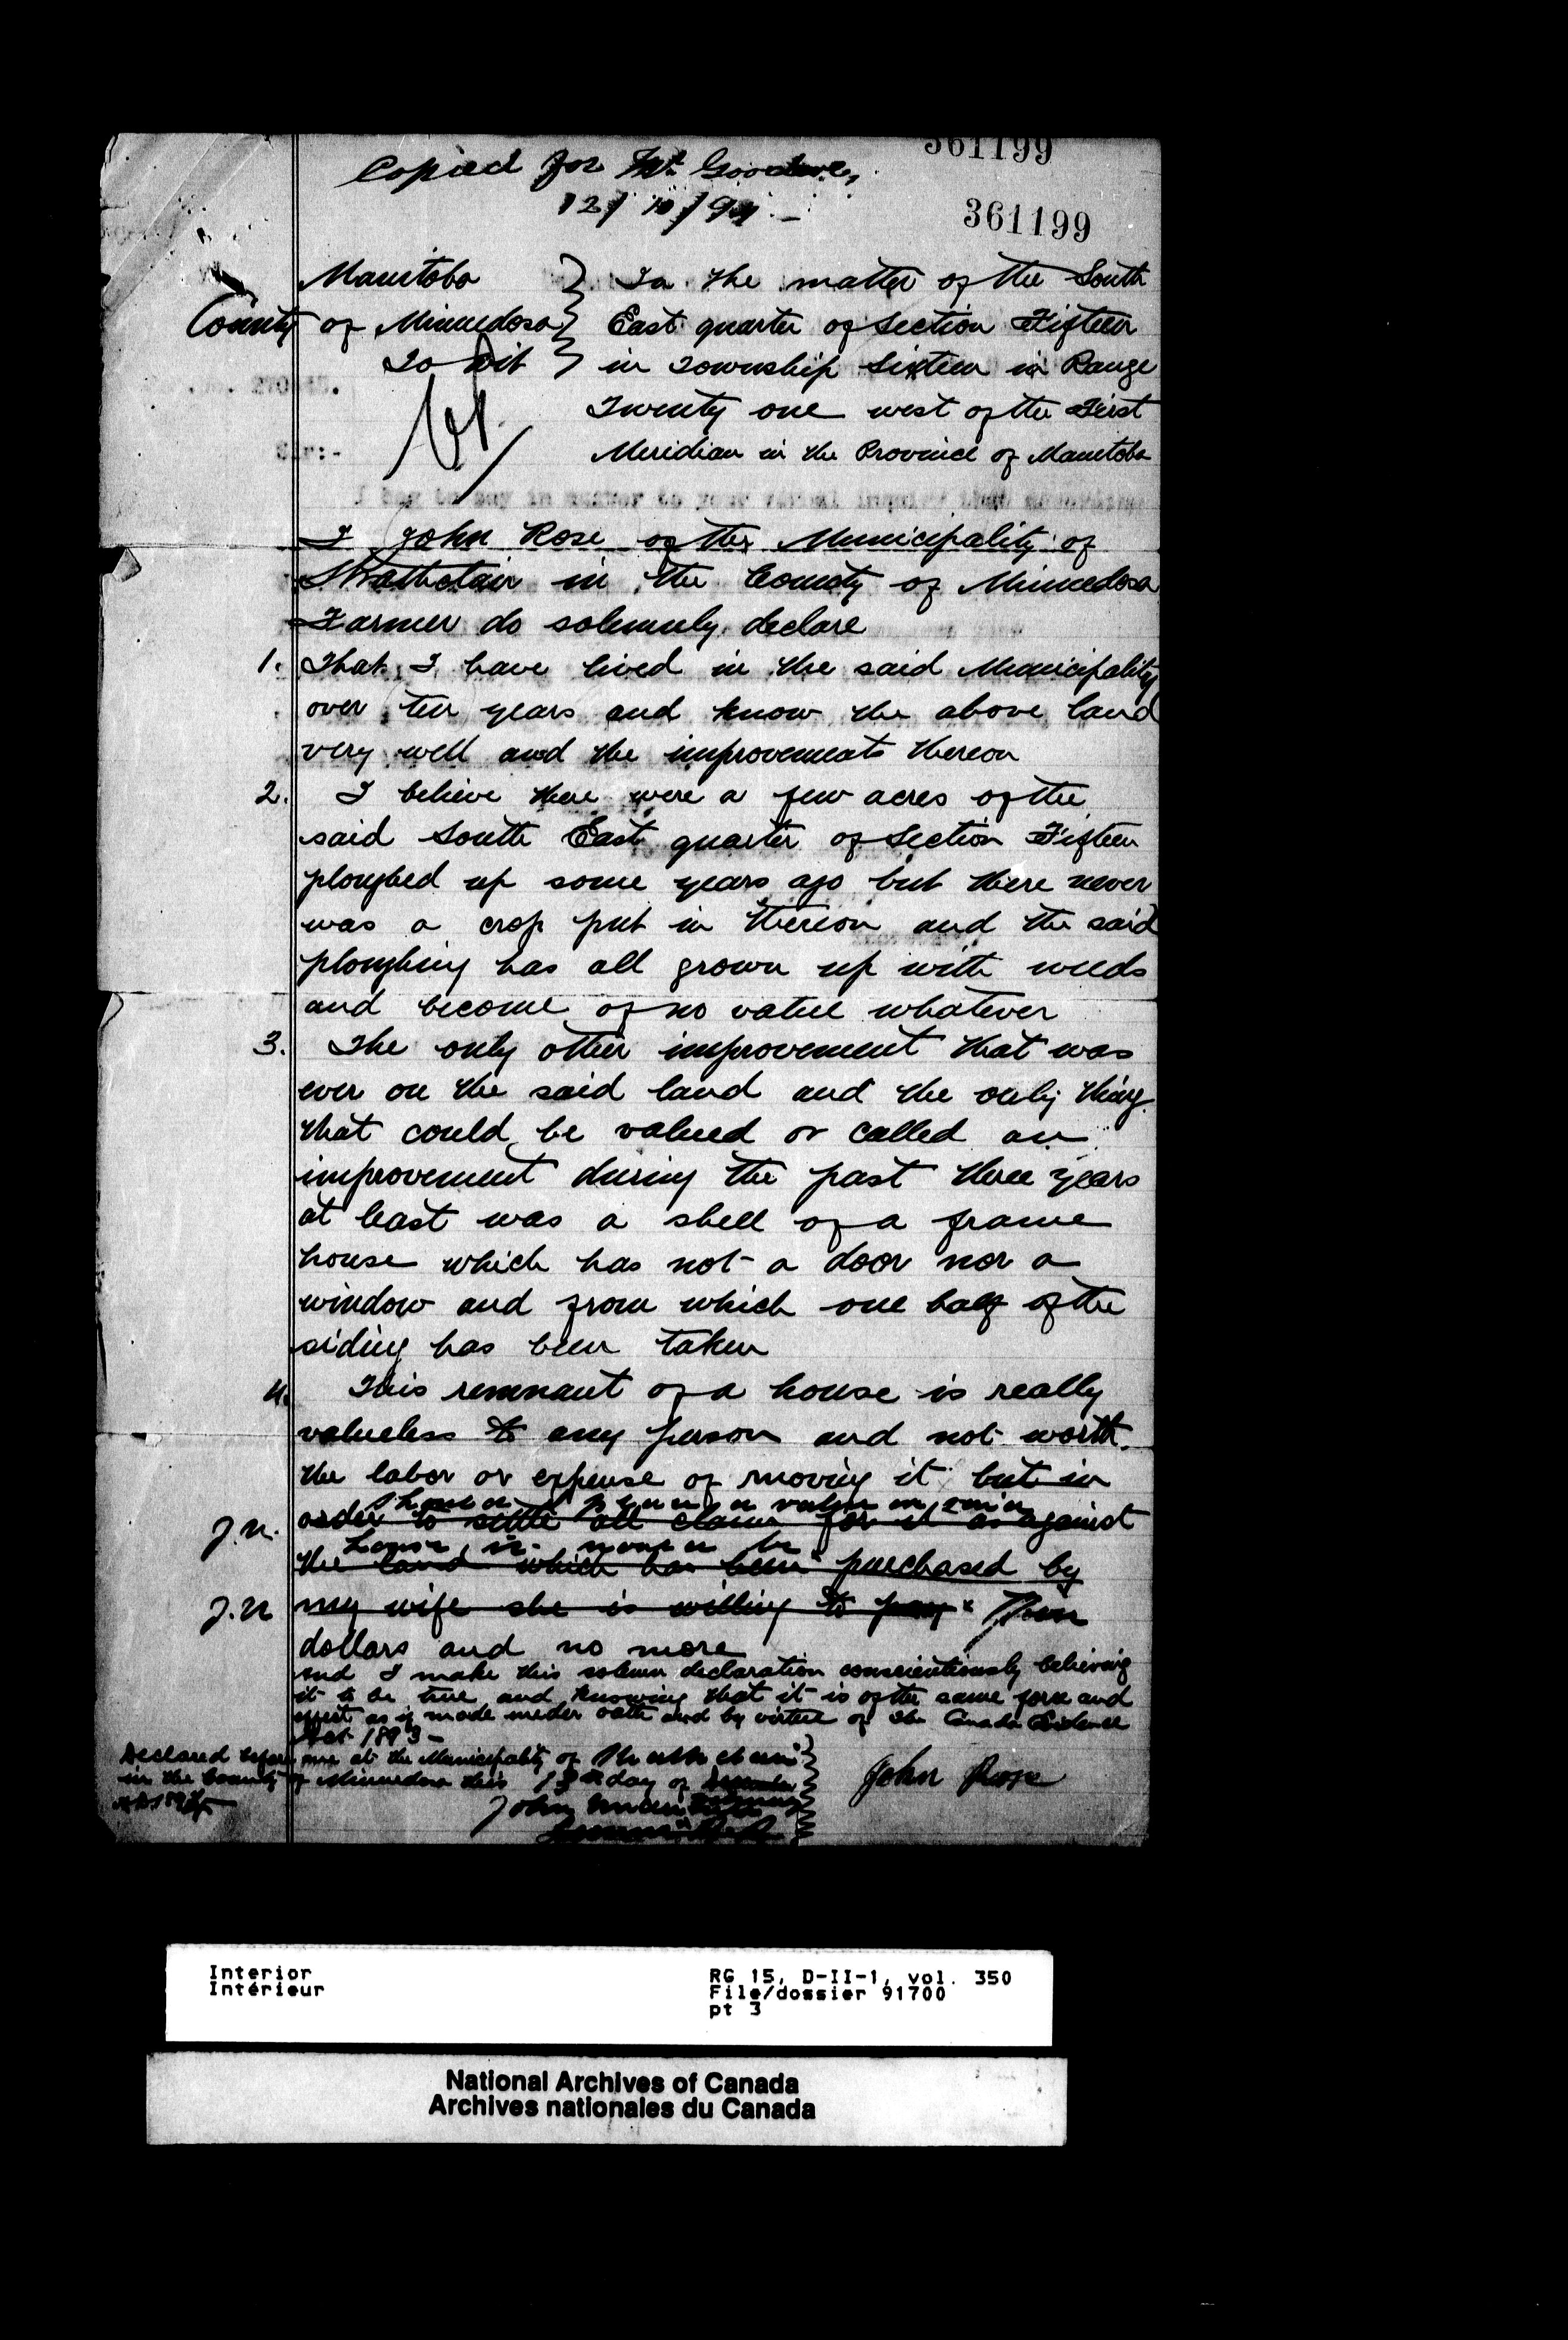 361199
Copied for Mr.
12/10/94.-
361199
Manitoba } In the matter of the South
County of Minnedosa } East quarter of Section Fifteen
To Wit } in Township Sixteen in Range
Twenty one west of the First
Meridian in the Province of Manitoba
I John Rose of the Municipality of
Strathclair in the County of Minnedosa
Farmer do solemnly declare
1. That I have lived in the said Municipality
over ten years and know the above land
very well and the improvements thereon
2. I believe there were a few acres of the
said South East quarter of Section Fifteen
ploughed up some years ago but there never
was a crop put in thereon and the said
ploughing has all grown up with weeds
and become of no value whatever
3. The only other improvement that was
ever on the said land and the only thing
that could be valued or called an
improvement during the past three years
at least was a shell of a frame
house which has not a door nor a
window and from which one half of the
siding has been taken
4. This remnant of a house is really
valueless to any person and not worth
the labor or expense of moving it but in
value on said
J.N. order to settle all claim for it as against
house is
the land which has been purchased by
J.N. my wife she is willing to pay
dollars and no more
and I make this solemn declaration conscientiously believing
it to be true and knowing that it is of the same force and
effect as if made under oath and by virtue of the Canada Evidence
Act 1893-
Declared before me at the Municipality of Strathclair }
in the County of Minnedosa this 13th day of
John Rose
John